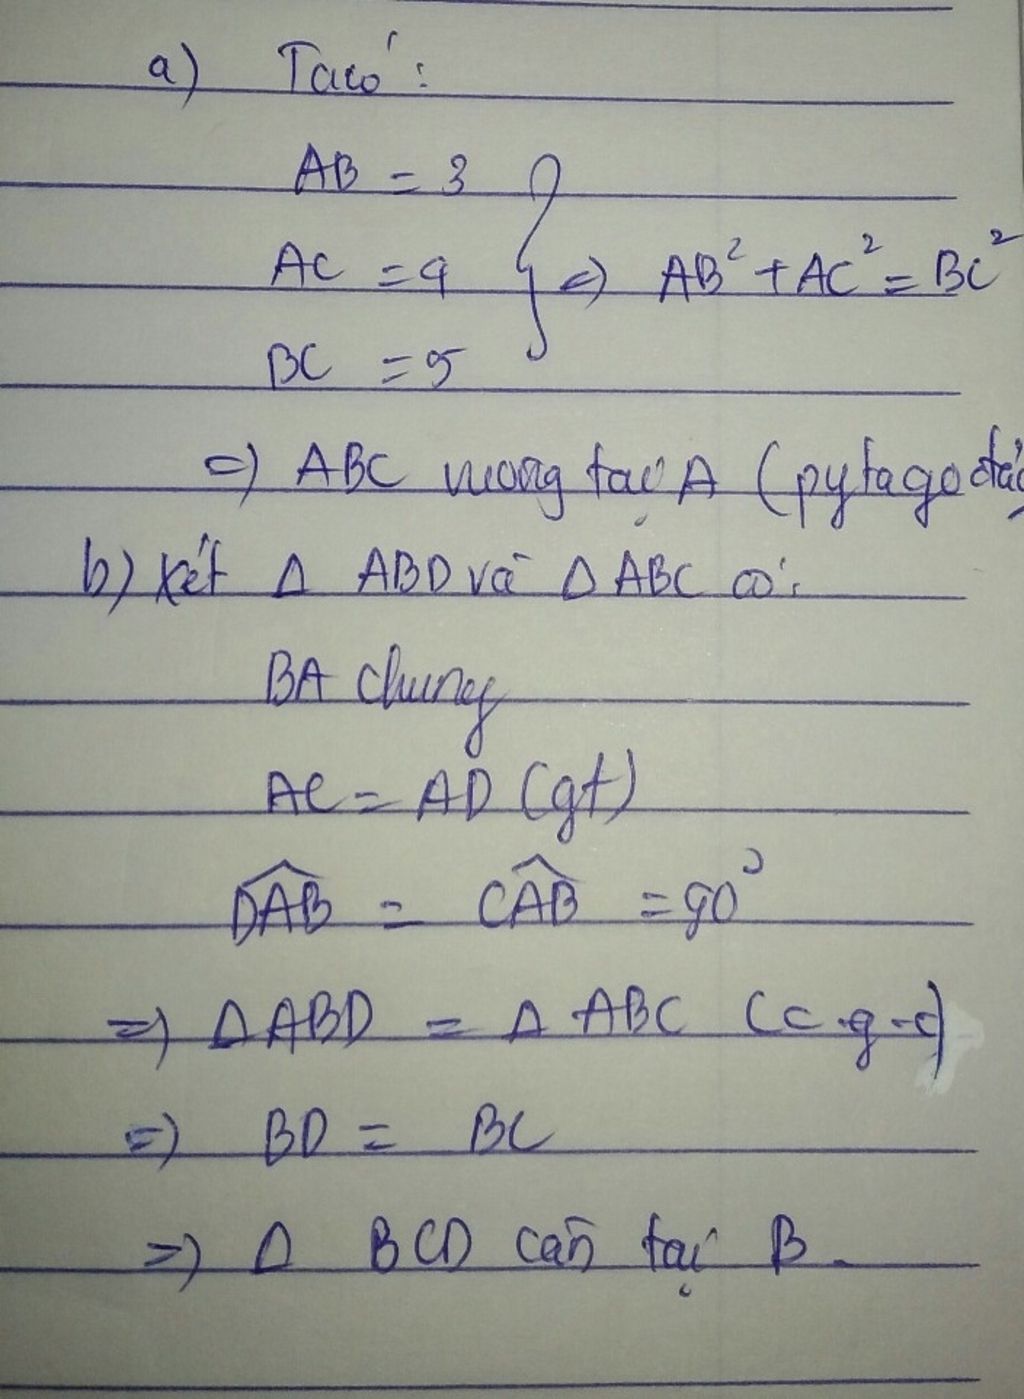 a) Ta có:
AB = 3
AC = 4
BC = 5
} => AB² + AC² = BC²
=> ABC vuông tại A (pytago đảo
b) Xét Δ ABD và Δ ABC có:
BA chung
AC = AD (gt)
DAB = CAB = 90°
=> Δ ABD = Δ ABC (c.g-c)
=> BD = BC
=> Δ BCD cân tại B.